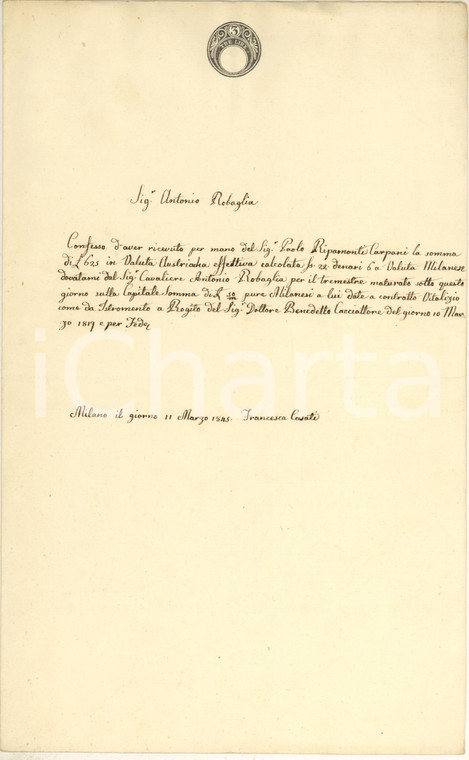 3
TRE LIRE
Sig.r Antonio Robaglia
Confesso d'aver ricevuto per mano del Sig.r Paolo Ripamonti Carpani la somma
di £ 625 in Valuta Austriaca effettiva calcolata 22 denari 6 a Valuta Milanese
dovutami dal Sig.r Cavaliere Antonio Robaglia per il tremestre maturato sotto questo
giorno sulla Capitale Somma di £ pure Milanesi a lui date a contratto Vitalizio
come da Istromento a Rogito del Sig.r Dottore Benedetto Cacciattore del giorno 10 Mar
zo 1817 e per Fede
iCharta
Milano il giorno 11 Marzo 1845. Francesca Casati